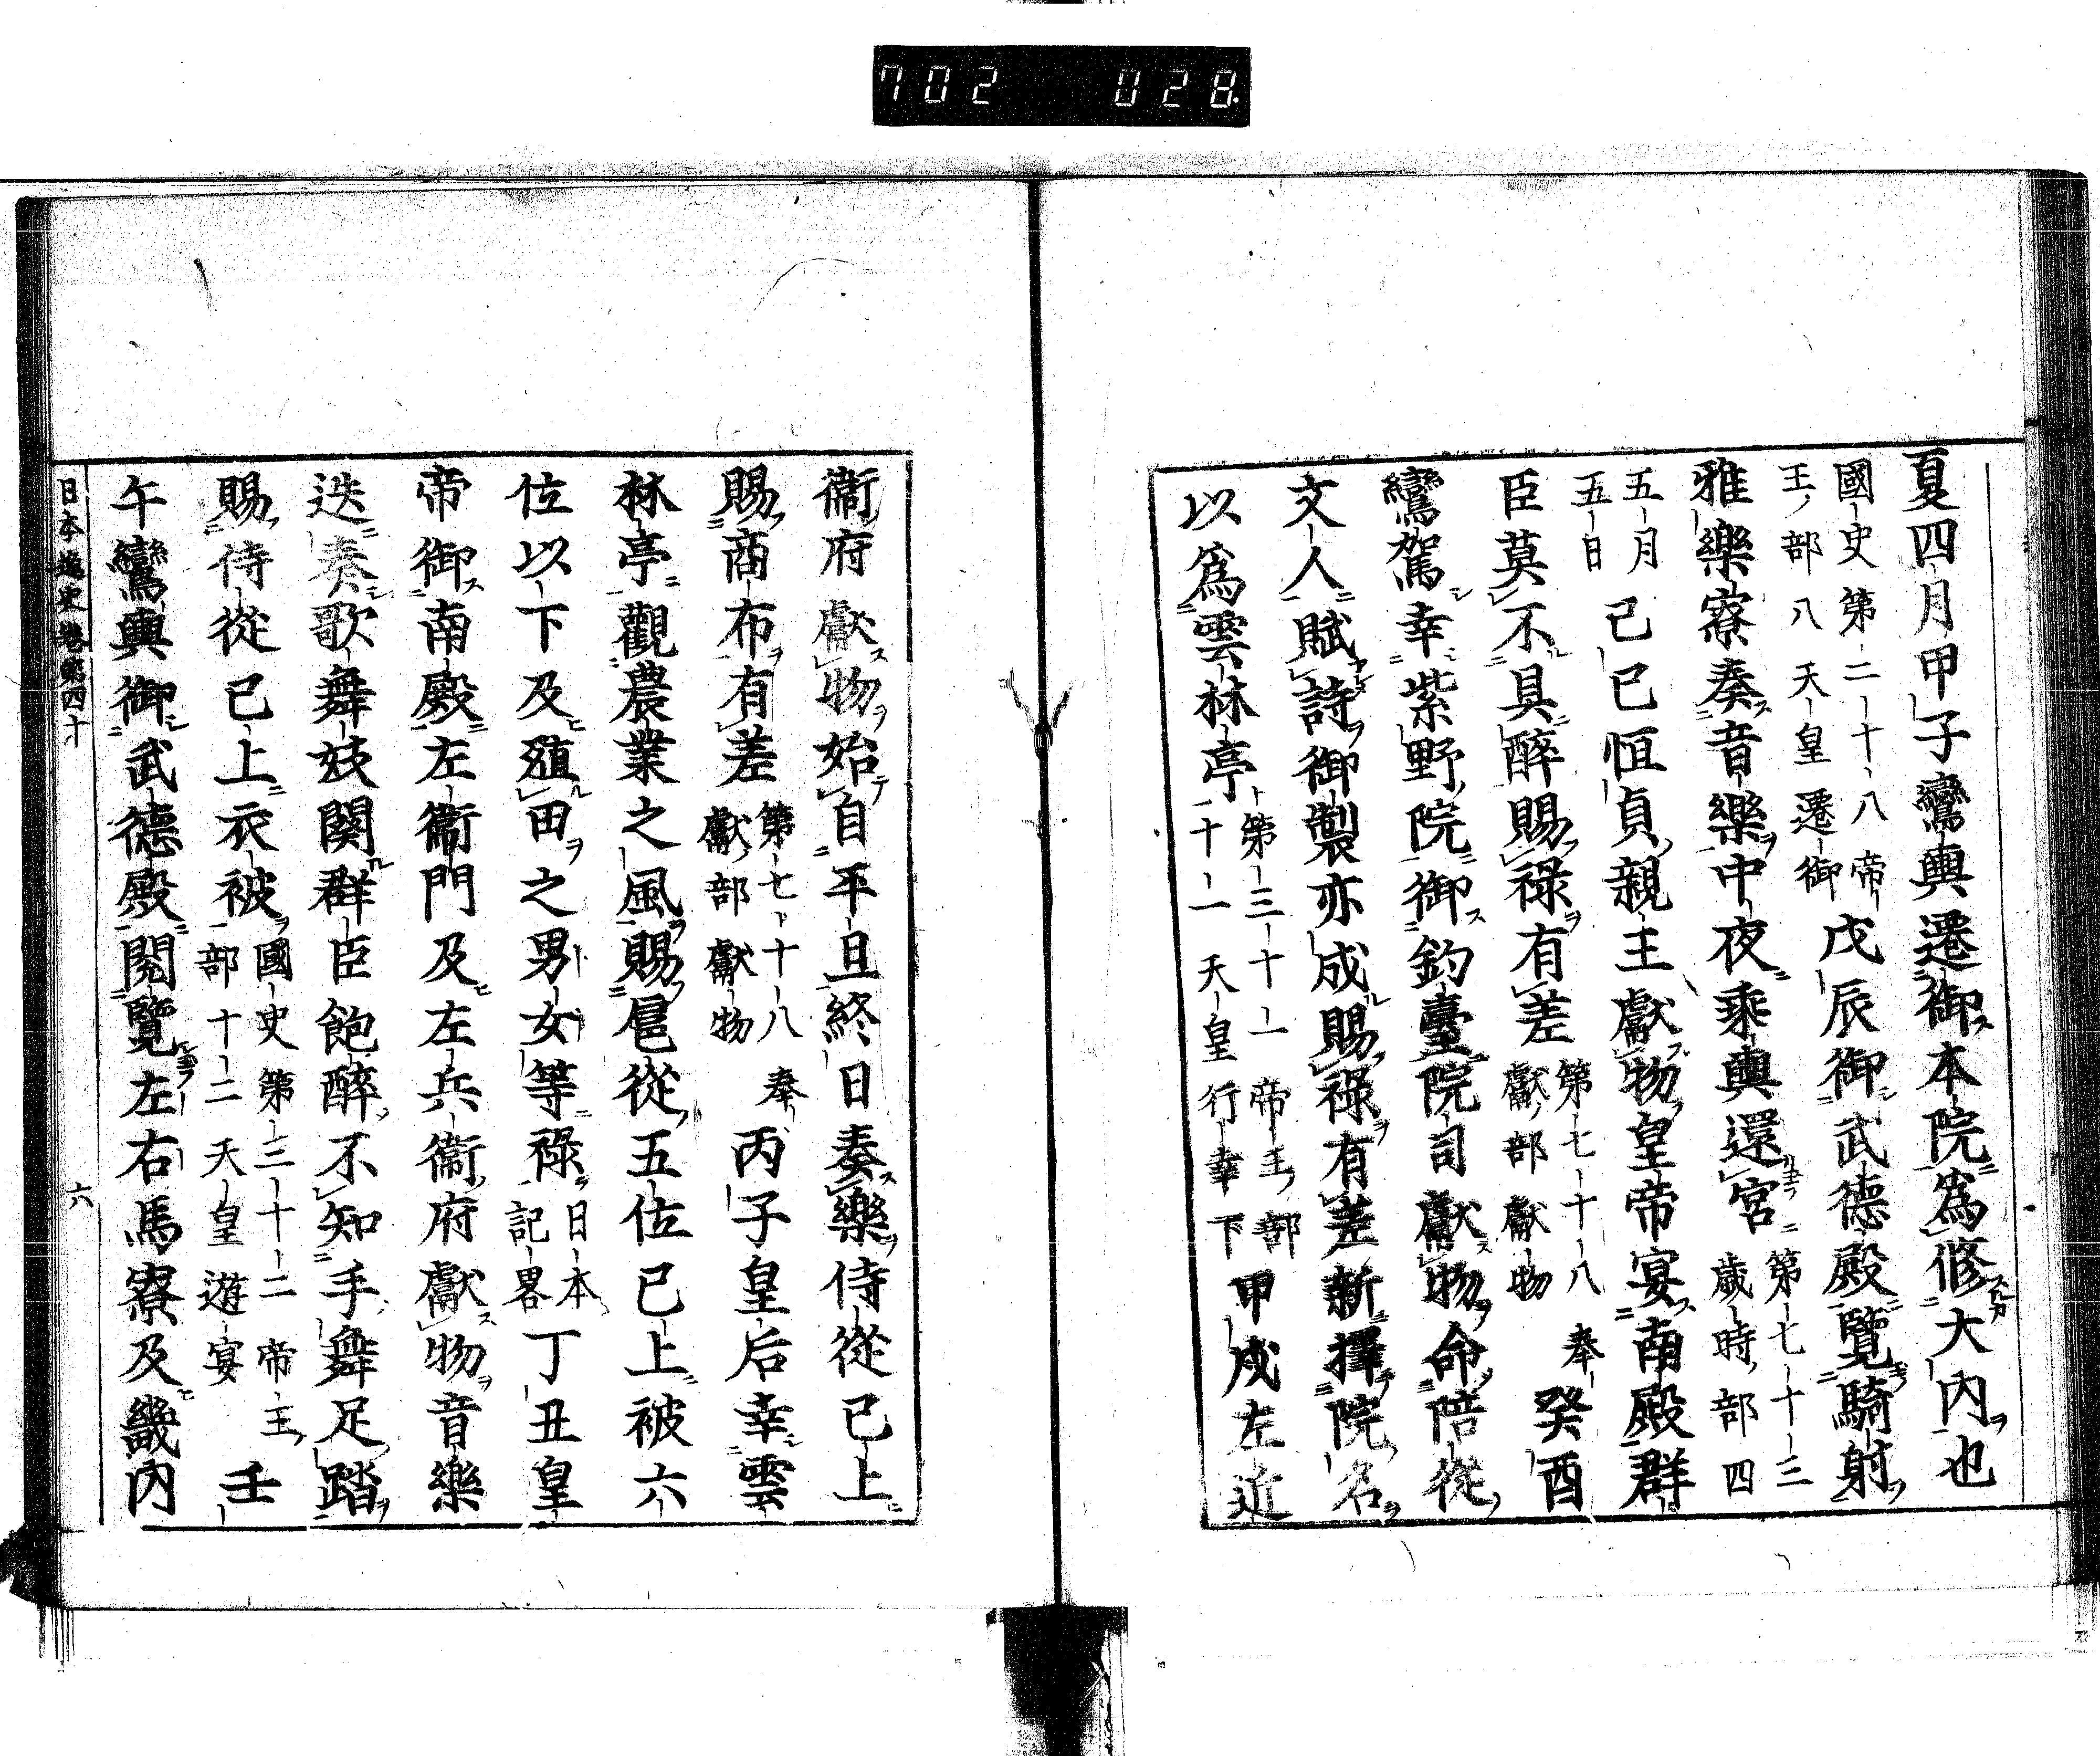 702 028
夏四月甲子鸞輿遷御本院爲修大内也
國史第二十八 帝
王部八 天皇遷御
戊辰御武德殿覽騎射
雅樂寮奏音樂中夜乘輿還宮
第七十三
歲時部四
五月
五日
己巳恒貞親王獻物皇帝宴南殿群
臣莫不具醉賜祿有差
第七十八 奉
獻部獻物
癸酉
鸞駕幸紫野院御釣臺院司獻物命陪從
文人賦詩御製亦成賜祿有差新擇院名
以爲雲林亭
第三十一 帝王部
十一 天皇行幸下
甲戌左近
衞府獻物始自平旦終日奏樂侍從已上
賜商布有差
第七十八 奉
獻部獻物
丙子皇后幸雲
林亭觀農業之風賜扈從五位已上被六
位以下及殖田之男女等祿
日本
記畧
丁丑皇
帝御南殿左衞門及左兵衞府獻物音樂
迭奏歌舞妓闋群臣飽醉不知手舞足踏
賜侍從已上衣被
國史第三十二 帝王
部十二 天皇遊宴
壬
午鸞輿御武德殿閲覽左右馬寮及畿内
日本逸史卷第四十
六